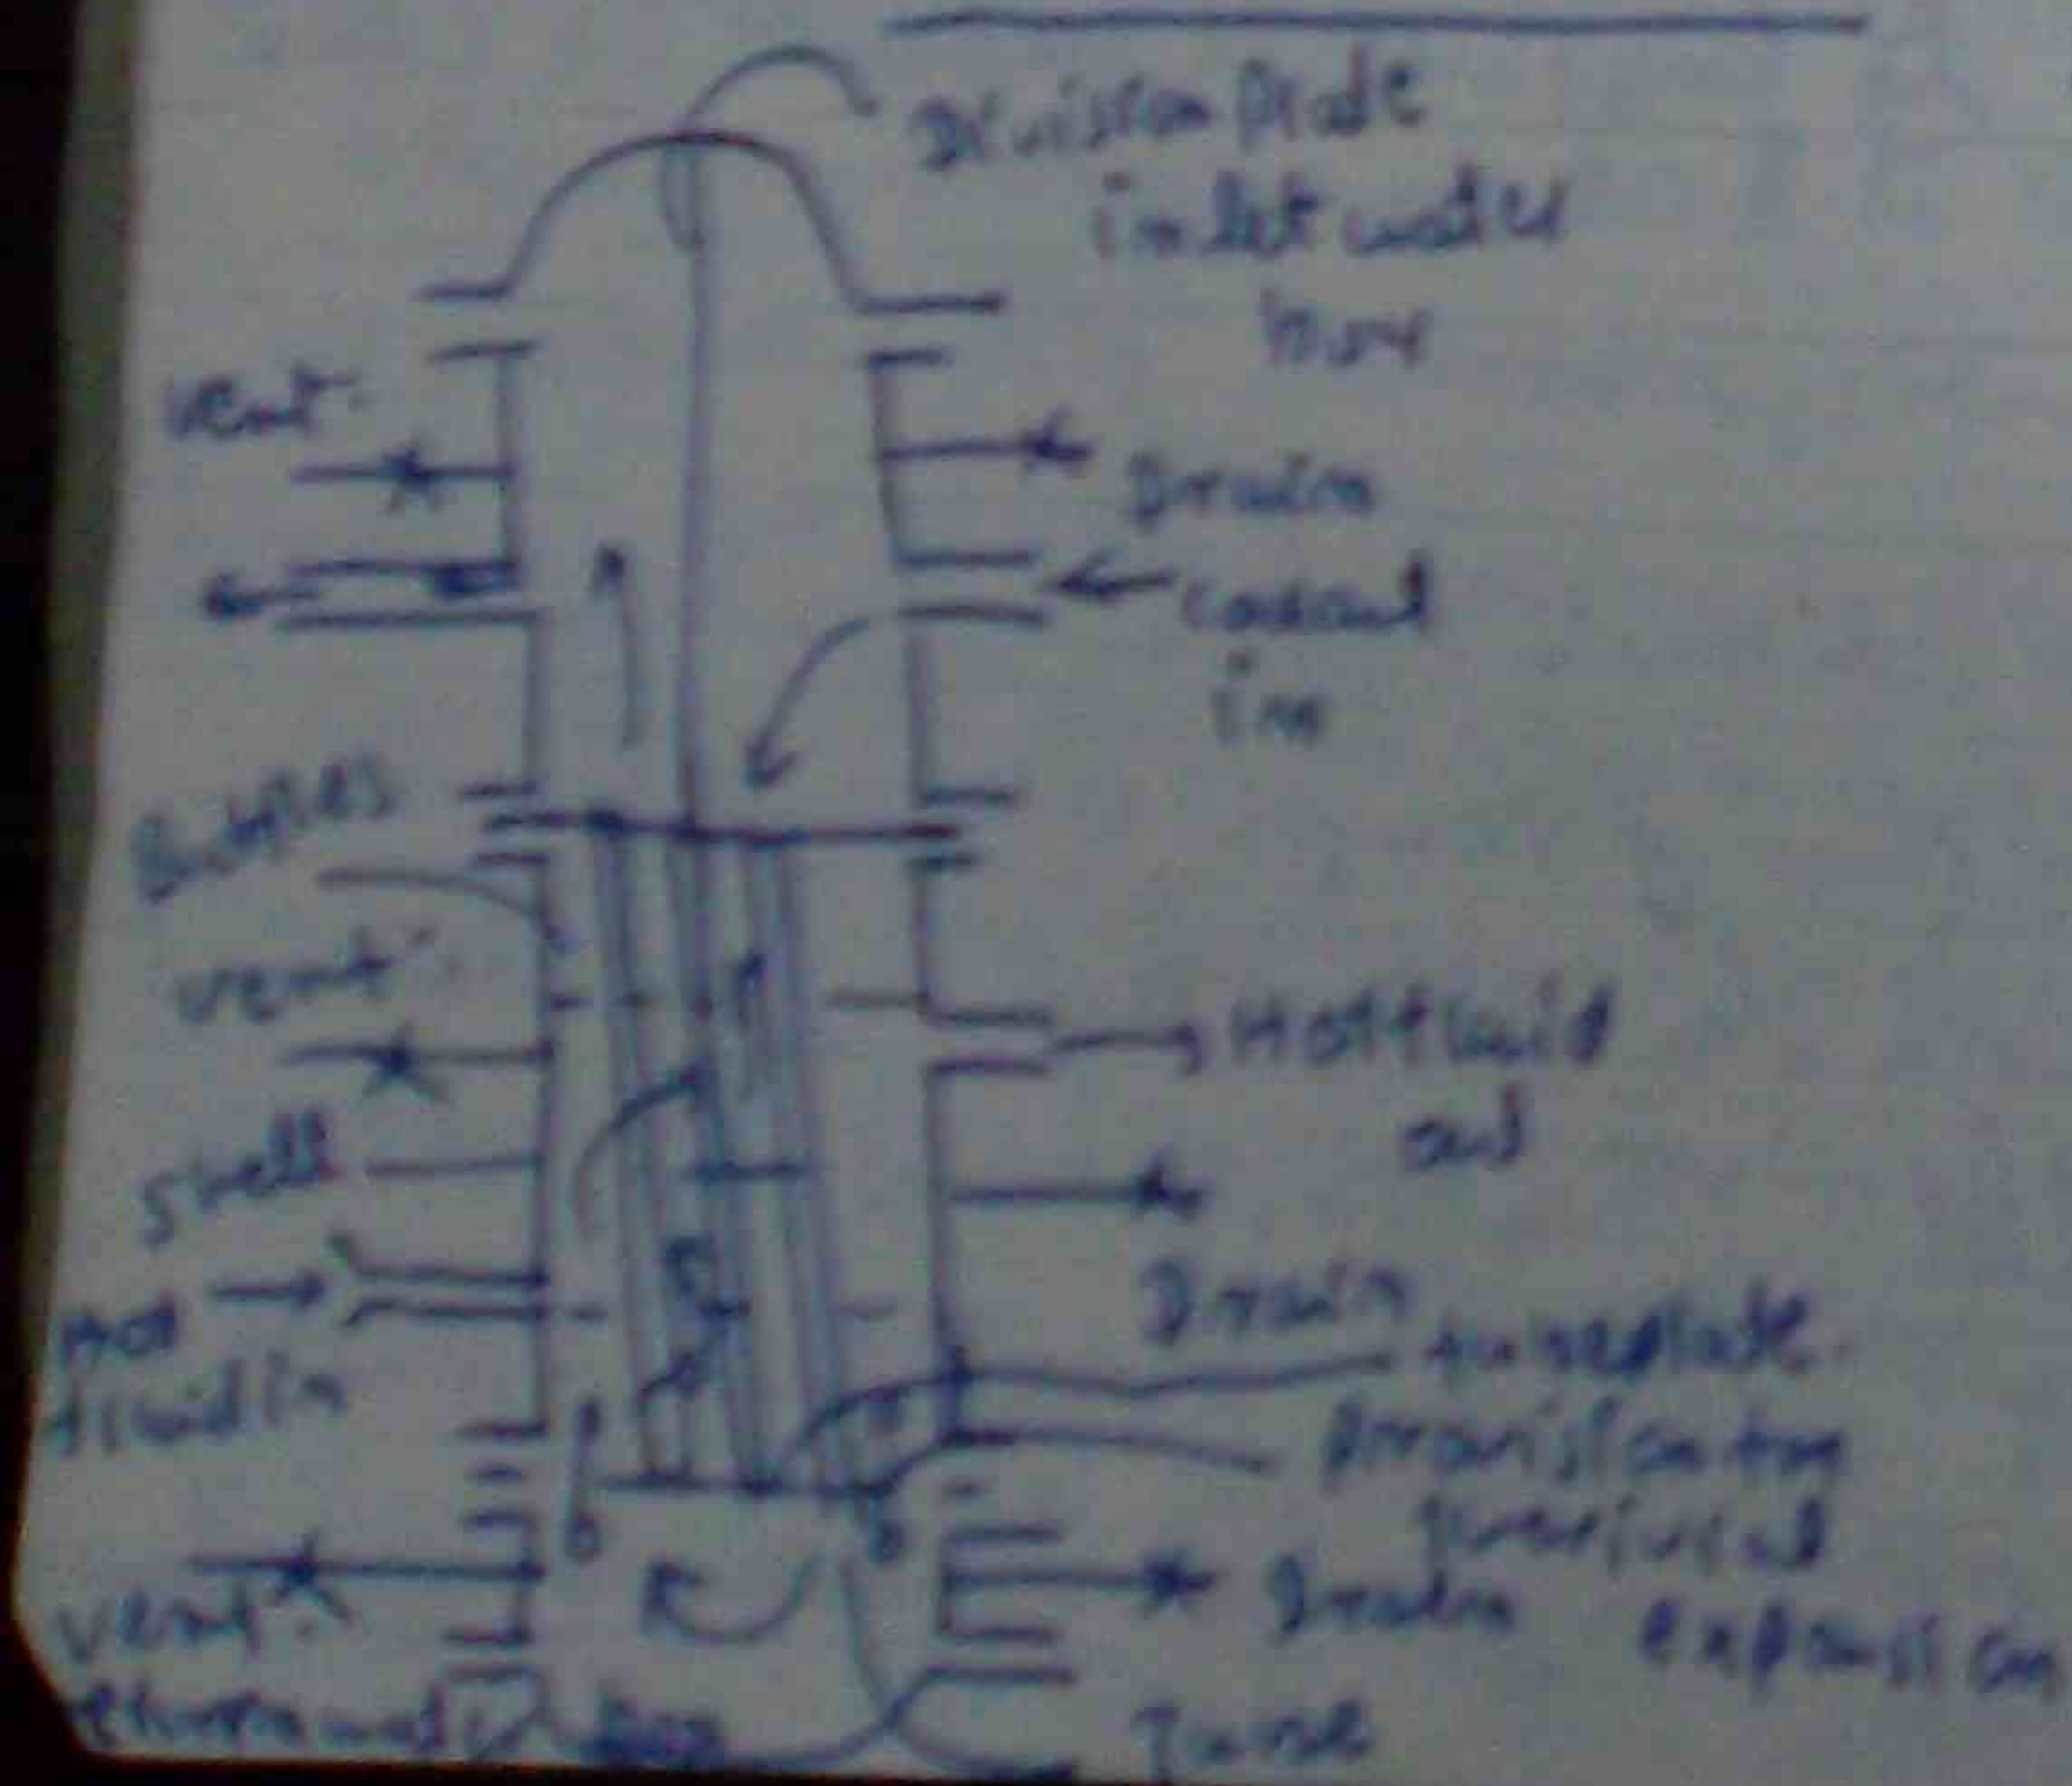 Division Plate
inlet water
box
vent.
Drain
coolant
in
Baffles
vent.
Hot fluid
out
shell
Drain
Hot
fluid in
tubeplate.
Provision for
Drain expansion
vent.
Tube